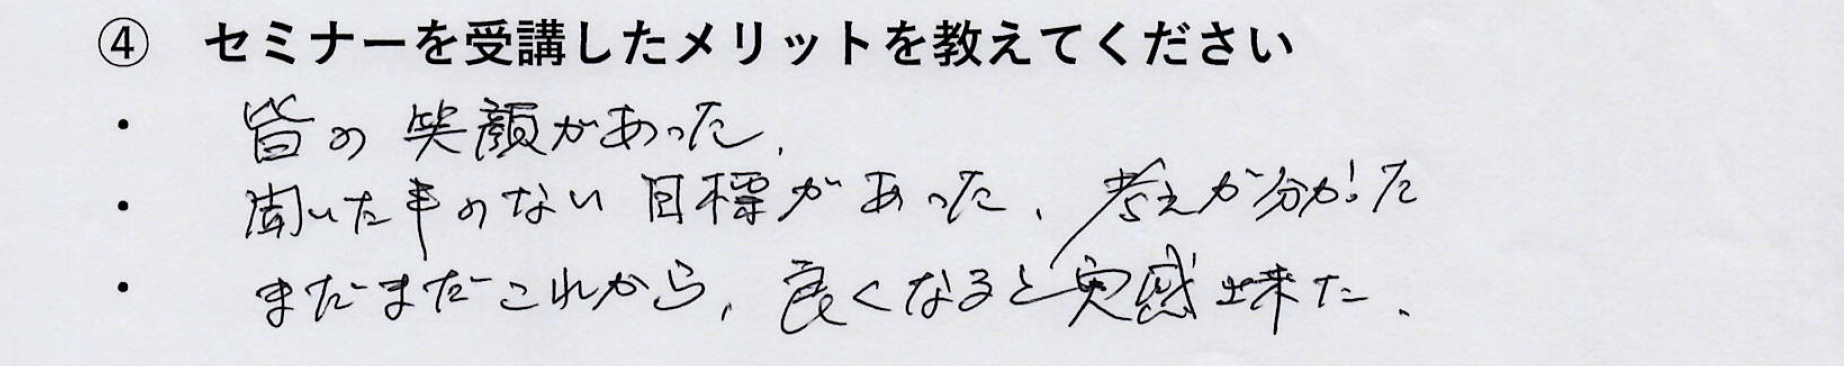 ④ セミナーを受講したメリットを教えてください
・ 皆の笑顔があった。
・ 聞いた事のない目標があった、考えが分かった
・ まだまだこれから、良くなると実感出来た。